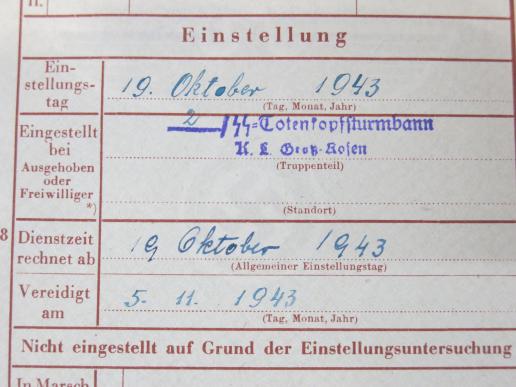 II.
Einstellung
Ein-
stellungs-
tag
19. Oktober 1943
(Tag, Monat, Jahr)
Eingestellt
bei
2 /SS=Totenkopfsturmbann
K. L. Groß-Rosen
(Truppenteil)
Ausgehoben
oder
Freiwilliger
*)
(Standort)
8
Dienstzeit
rechnet ab
19 Oktober 1943
(Allgemeiner Einstellungstag)
Vereidigt
am
5. 11. 1943
(Tag, Monat, Jahr)
Nicht eingestellt auf Grund der Einstellungsuntersuchung
In Marsch